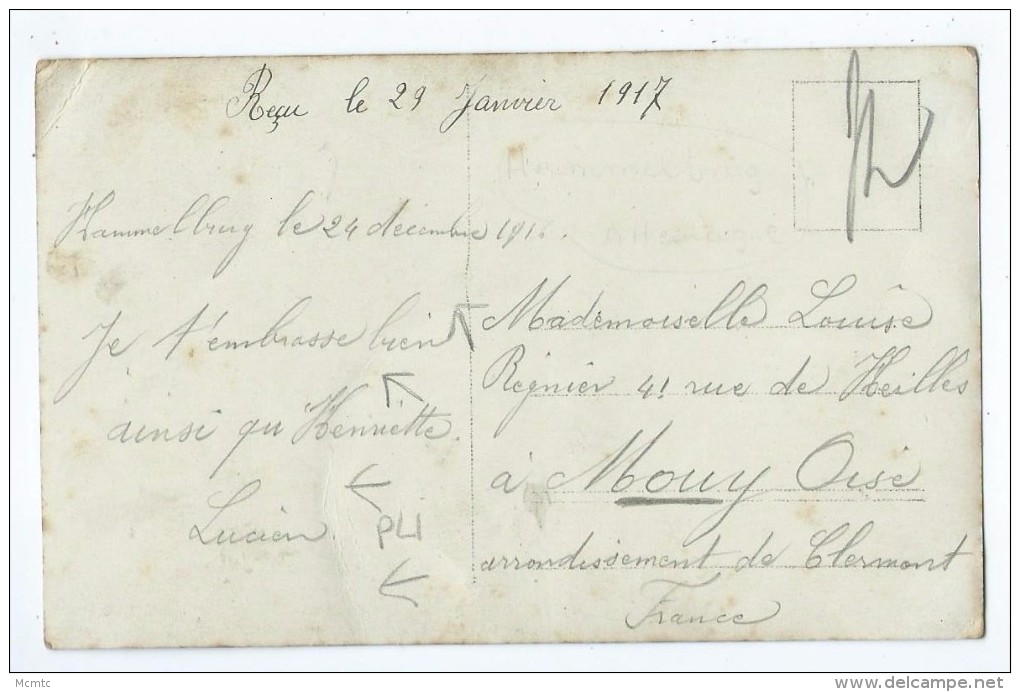 Reçu le 29 Janvier 1917
Hammelburg le 24 décembre 1916.
Je t'embrasse bien
ainsi qu'Henriette.
Lucien.
PLI
Mademoiselle Louise
Régnier 41 rue de Heilles
à Mouy Oise
arrondissement de Clermont
France
Mcmtc
delcampe.net